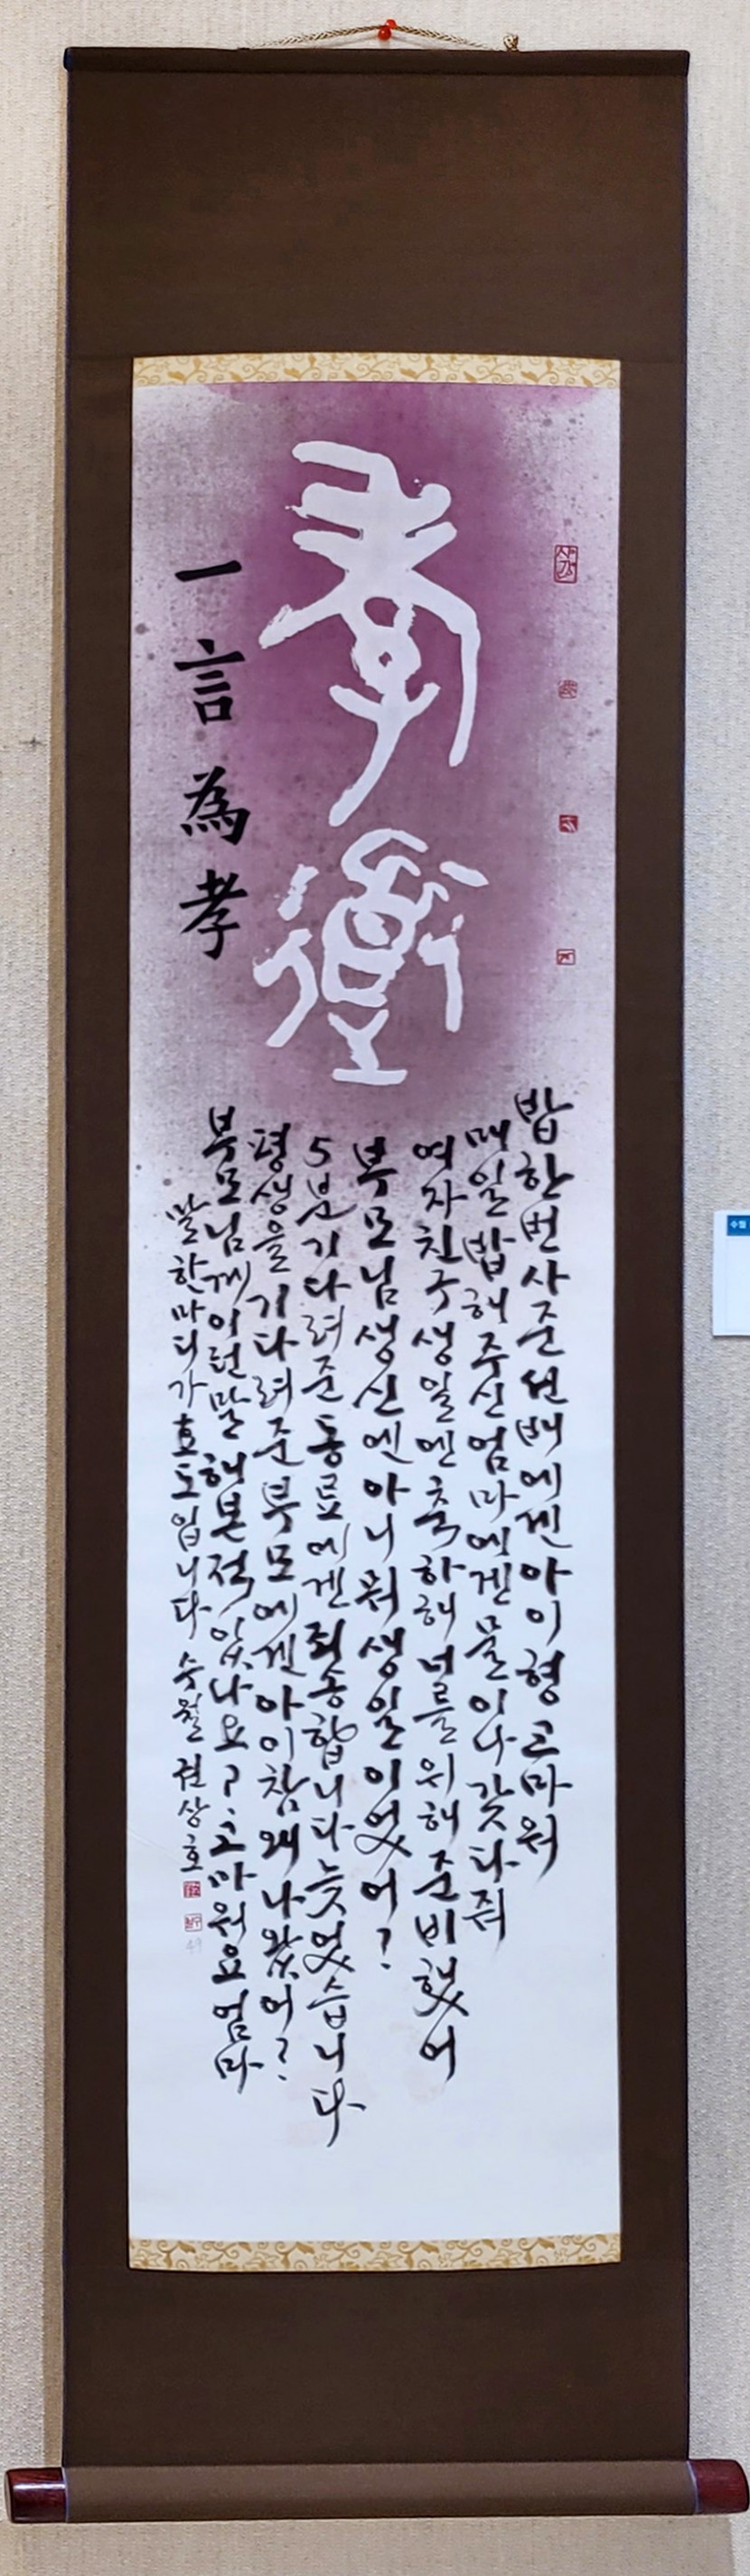 孝道
一言為孝
밥한번사준선배에겐아이형고마워
매일밥해주신엄마에겐물이나갖다줘
여자친구생일엔축하해너를위해준비했어
부모님생신엔아니뭐생일이었어?
5분기다려준동료에겐죄송합니다늦었습니다
평생을기다려준부모에겐아이참왜나왔어?
부모님께이런말해본적있나요?고마워요엄마
말한마디가효도입니다 수월 권상호
수월